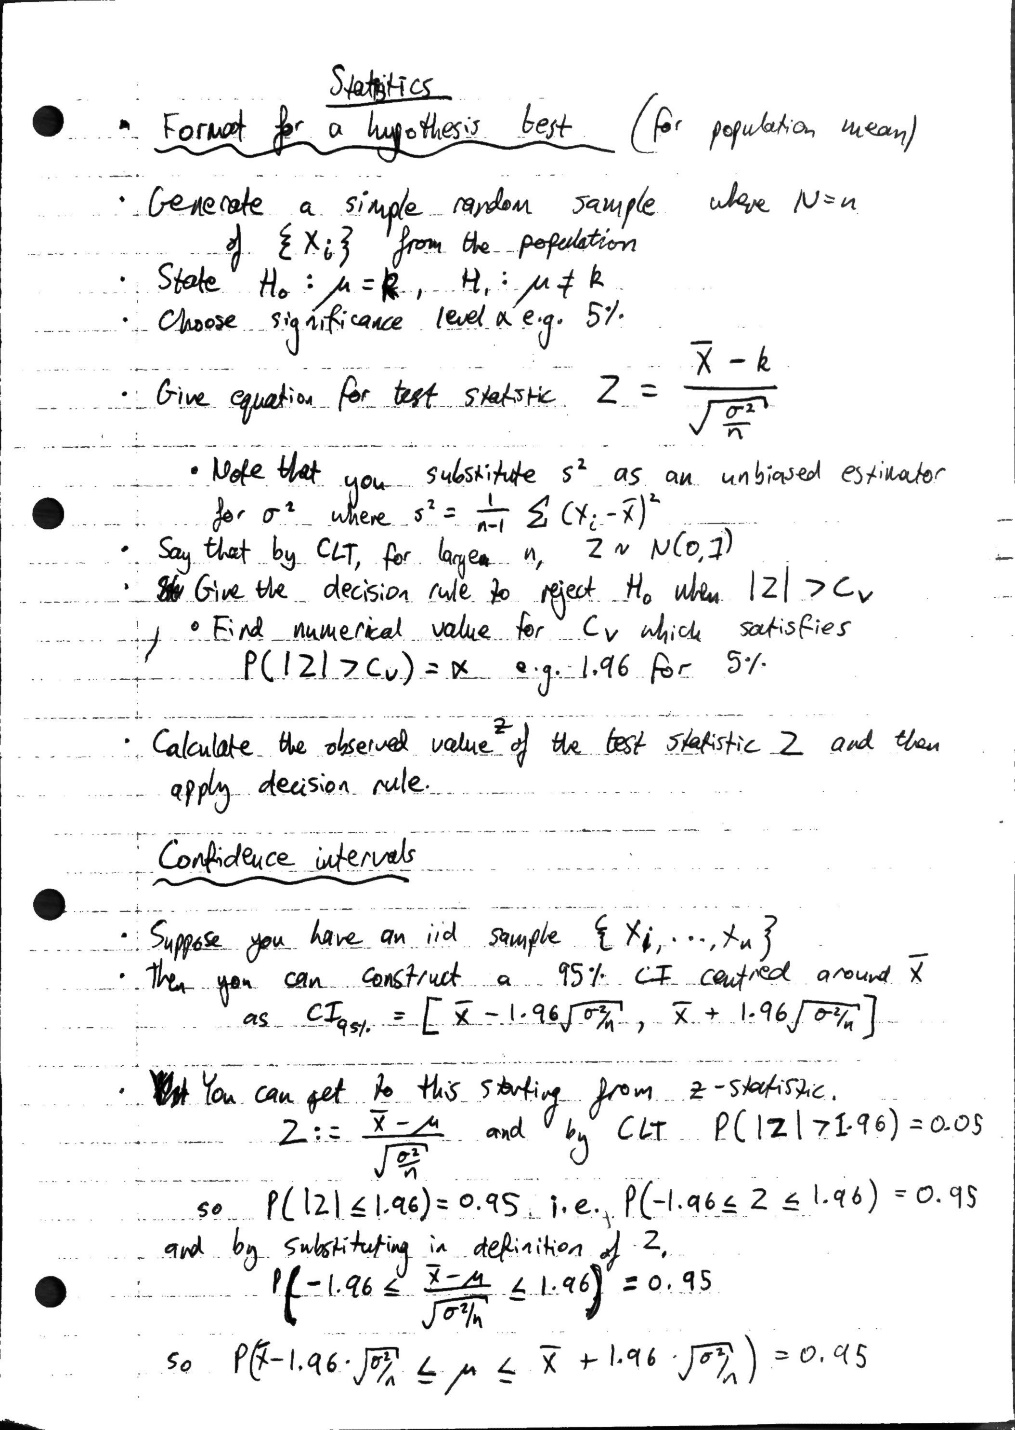 Statistics
• Format for a hypothesis test (for population mean)
• Generate a simple random sample where N=n
of {Xi} from the population
• State H₀ : μ = k, H₁ : μ ≠ k
• Choose significance level α e.g. 5%
• Give equation for test statistic Z = (X̄ - k) / √(σ²/n)
• Note that you substitute s² as an unbiased estimator
for σ² where s² = 1/(n-1) Σ (Xi - X̄)²
• Say that by CLT, for large n, Z ~ N(0,1)
• Give the decision rule to reject H₀ when |Z| > Cv
• Find numerical value for Cv which satisfies
P(|Z| > Cv) = α e.g. 1.96 for 5%
• Calculate the observed value z of the test statistic Z and then
apply decision rule.
Confidence intervals
• Suppose you have an iid sample {Xi, ..., Xn}
• Then you can construct a 95% CI centred around X̄
as CI95% = [X̄ - 1.96√(σ²/n), X̄ + 1.96√(σ²/n)]
• You can get to this starting from z-statistic.
Z := (X̄ - μ) / √(σ²/n) and by CLT P(|Z| > 1.96) = 0.05
so P(|Z| ≤ 1.96) = 0.95 i.e. P(-1.96 ≤ Z ≤ 1.96) = 0.95
and by substituting in definition of Z,
P(-1.96 ≤ (X̄ - μ) / √(σ²/n) ≤ 1.96) = 0.95
so P(X̄ - 1.96 · √(σ²/n) ≤ μ ≤ X̄ + 1.96 · √(σ²/n)) = 0.95